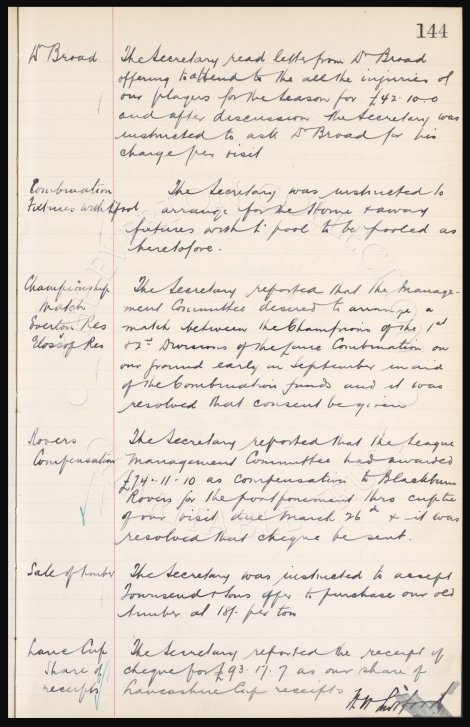 144
Dr Broad
The Secretary read letter from Dr Broad
offering to attend to the all the injuries of
our players for the Season for £42.10.0
and after discussion the Secretary was
instructed to ask Dr Broad for his
charge per visit
Combination
Fixtures with L'pool
The Secretary was instructed to
arrange for the Home & away
fixtures with L'pool to be pooled as
heretofore.
Championship
Match
Everton Res
v Glossop Res
The Secretary reported that the Manage-
ment Committee desired to arrange a
match between the Champions of the 1st
& 2nd Divisions of the Lancs Combination on
our ground early in September in aid
of the Combination funds and it was
resolved that consent be given
Rovers
Compensation
The Secretary reported that the League
Management Committee had awarded
£74.11.10 as compensation to Blackburn
Rovers for the postponement thro cupties
of our visit due March 26th & it was
resolved that cheque be sent.
Sale of timber
The Secretary was instructed to accept
Townsend & Sons offer to purchase our old
timber at 18/- per ton
Lancs Cup
Share of
receipts
The Secretary reported the receipt of
cheque for £93.17.7 as our share of
Lancashire Cup receipts